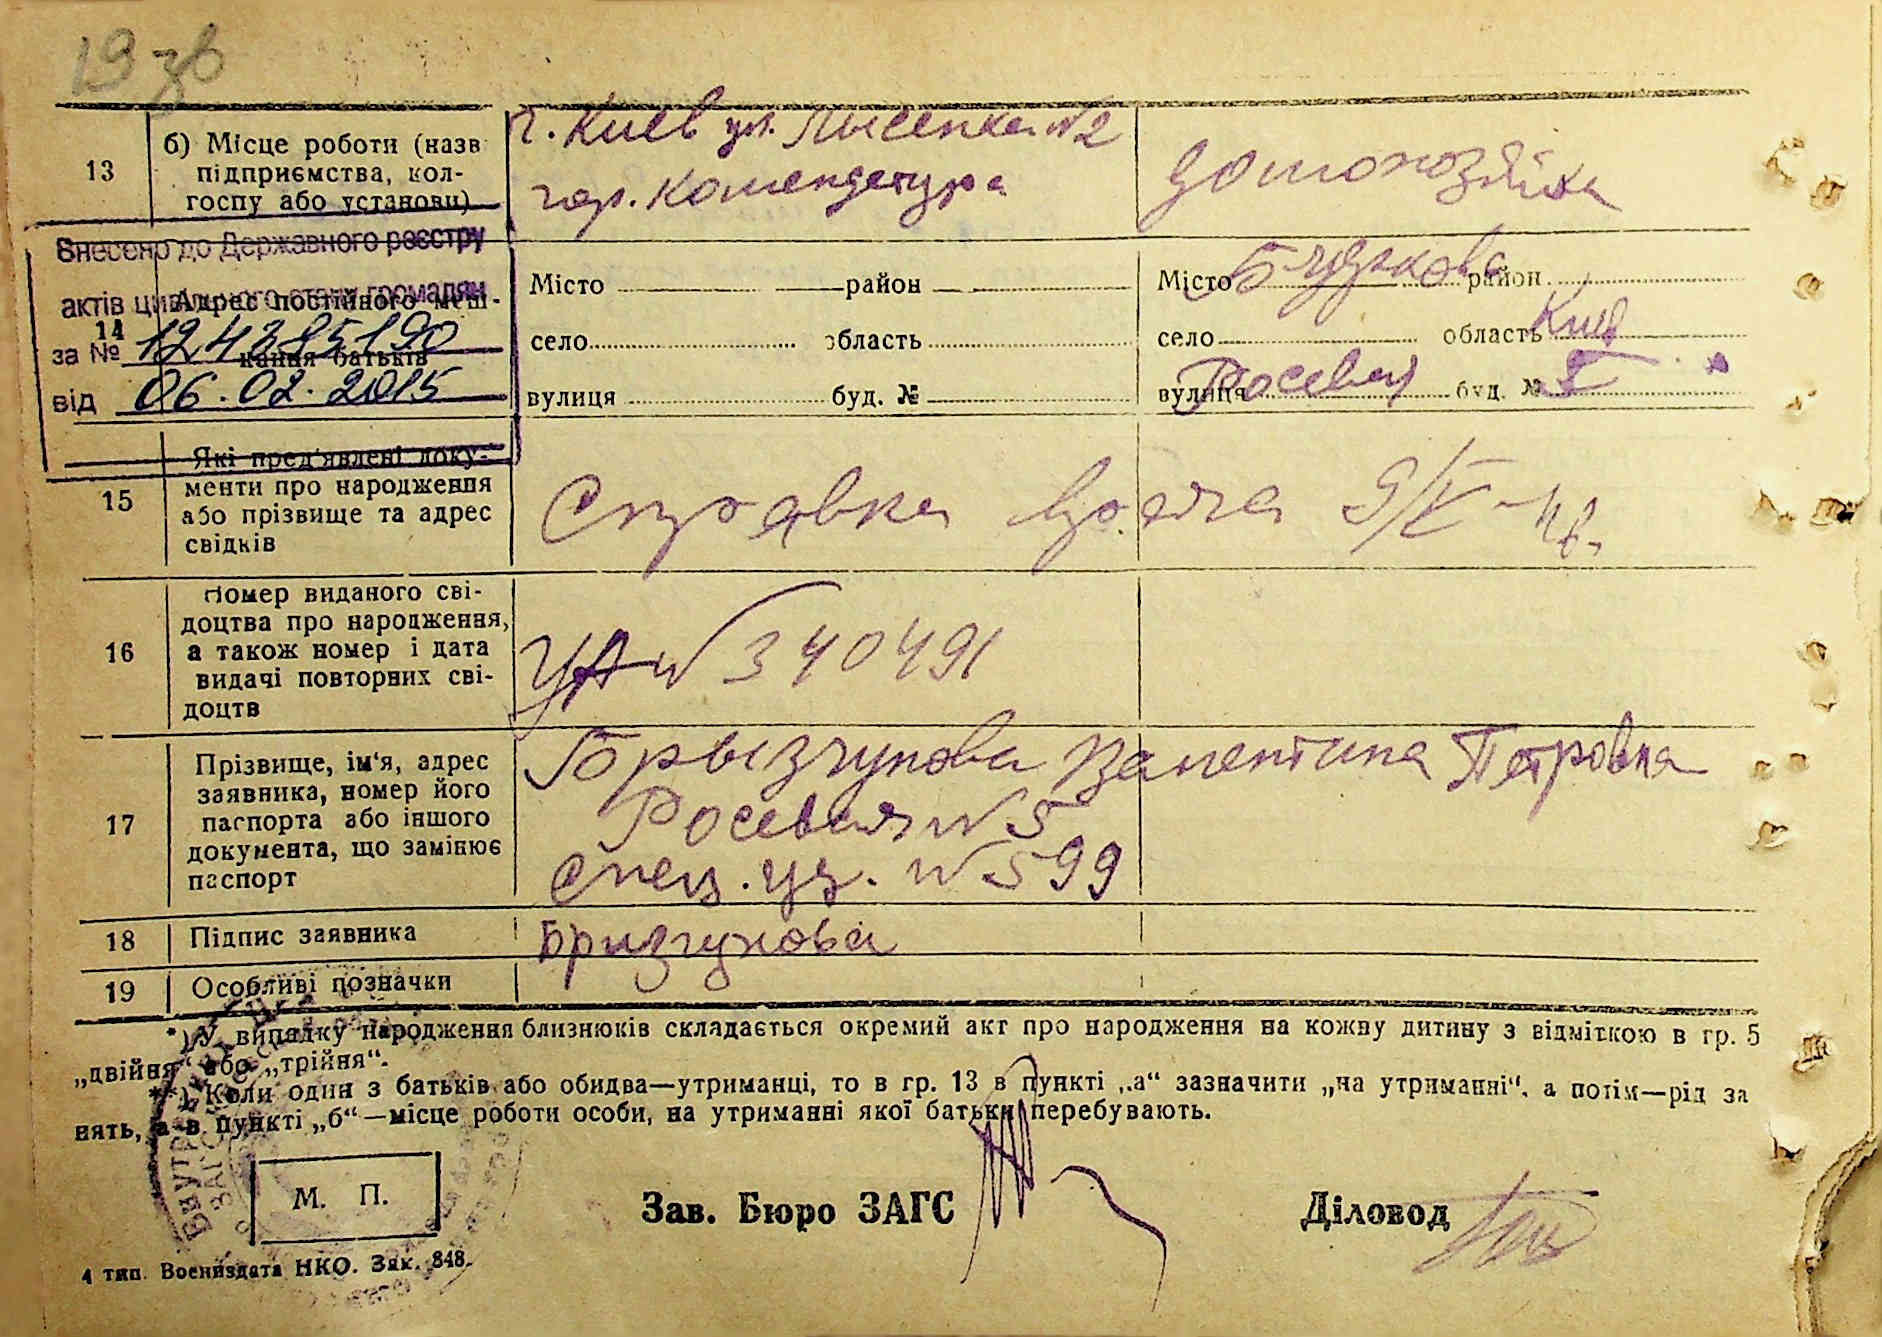 19 зв
13
б) Місце роботи (назв
підприємства, кол-
госпу або установи)
г. Киев ул. Лысенка №2
гор. Комендатура
домохозяйка
Внесено до Державного реєстру
актів цивільного стану громадян
за № 124385190
від 06.02.2015
14
Адрес постійного меш-
кання батьків
Місто район
село область
вулиця буд. №
Місто район
село область Киев
вулиця буд. № 5
15
Які пред'явлені доку-
менти про народження
або прізвище та адрес
свідків
Справка врача 9/V-46.
16
Номер виданого сві-
доцтва про народження,
а також номер і дата
видачі повторних сві-
доцтв
УА № 340491
17
Прізвище, ім'я, адрес
заявника, номер його
паспорта або іншого
документа, що замінює
паспорт
Брызгунова Валентина Петровна
№ 5
Спец. уд. № 599
18
Підпис заявника
Бризгунова
19
Особливі позначки
*) У випадку народження близнюків складається окремий акт про народження на кожну дитину з відміткою в гр. 5
„двійня“ або „трійня“.
**) Коли один з батьків або обидва—утриманці, то в гр. 13 в пункті „а“ зазначити „на утриманні“, а потім—рід за
нять, а в пункті „б“—місце роботи особи, на утриманні якої батьки перебувають.
М. П.
Зав. Бюро ЗАГС
Діловод
4 тип. Воениздата НКО. Зак. 848.